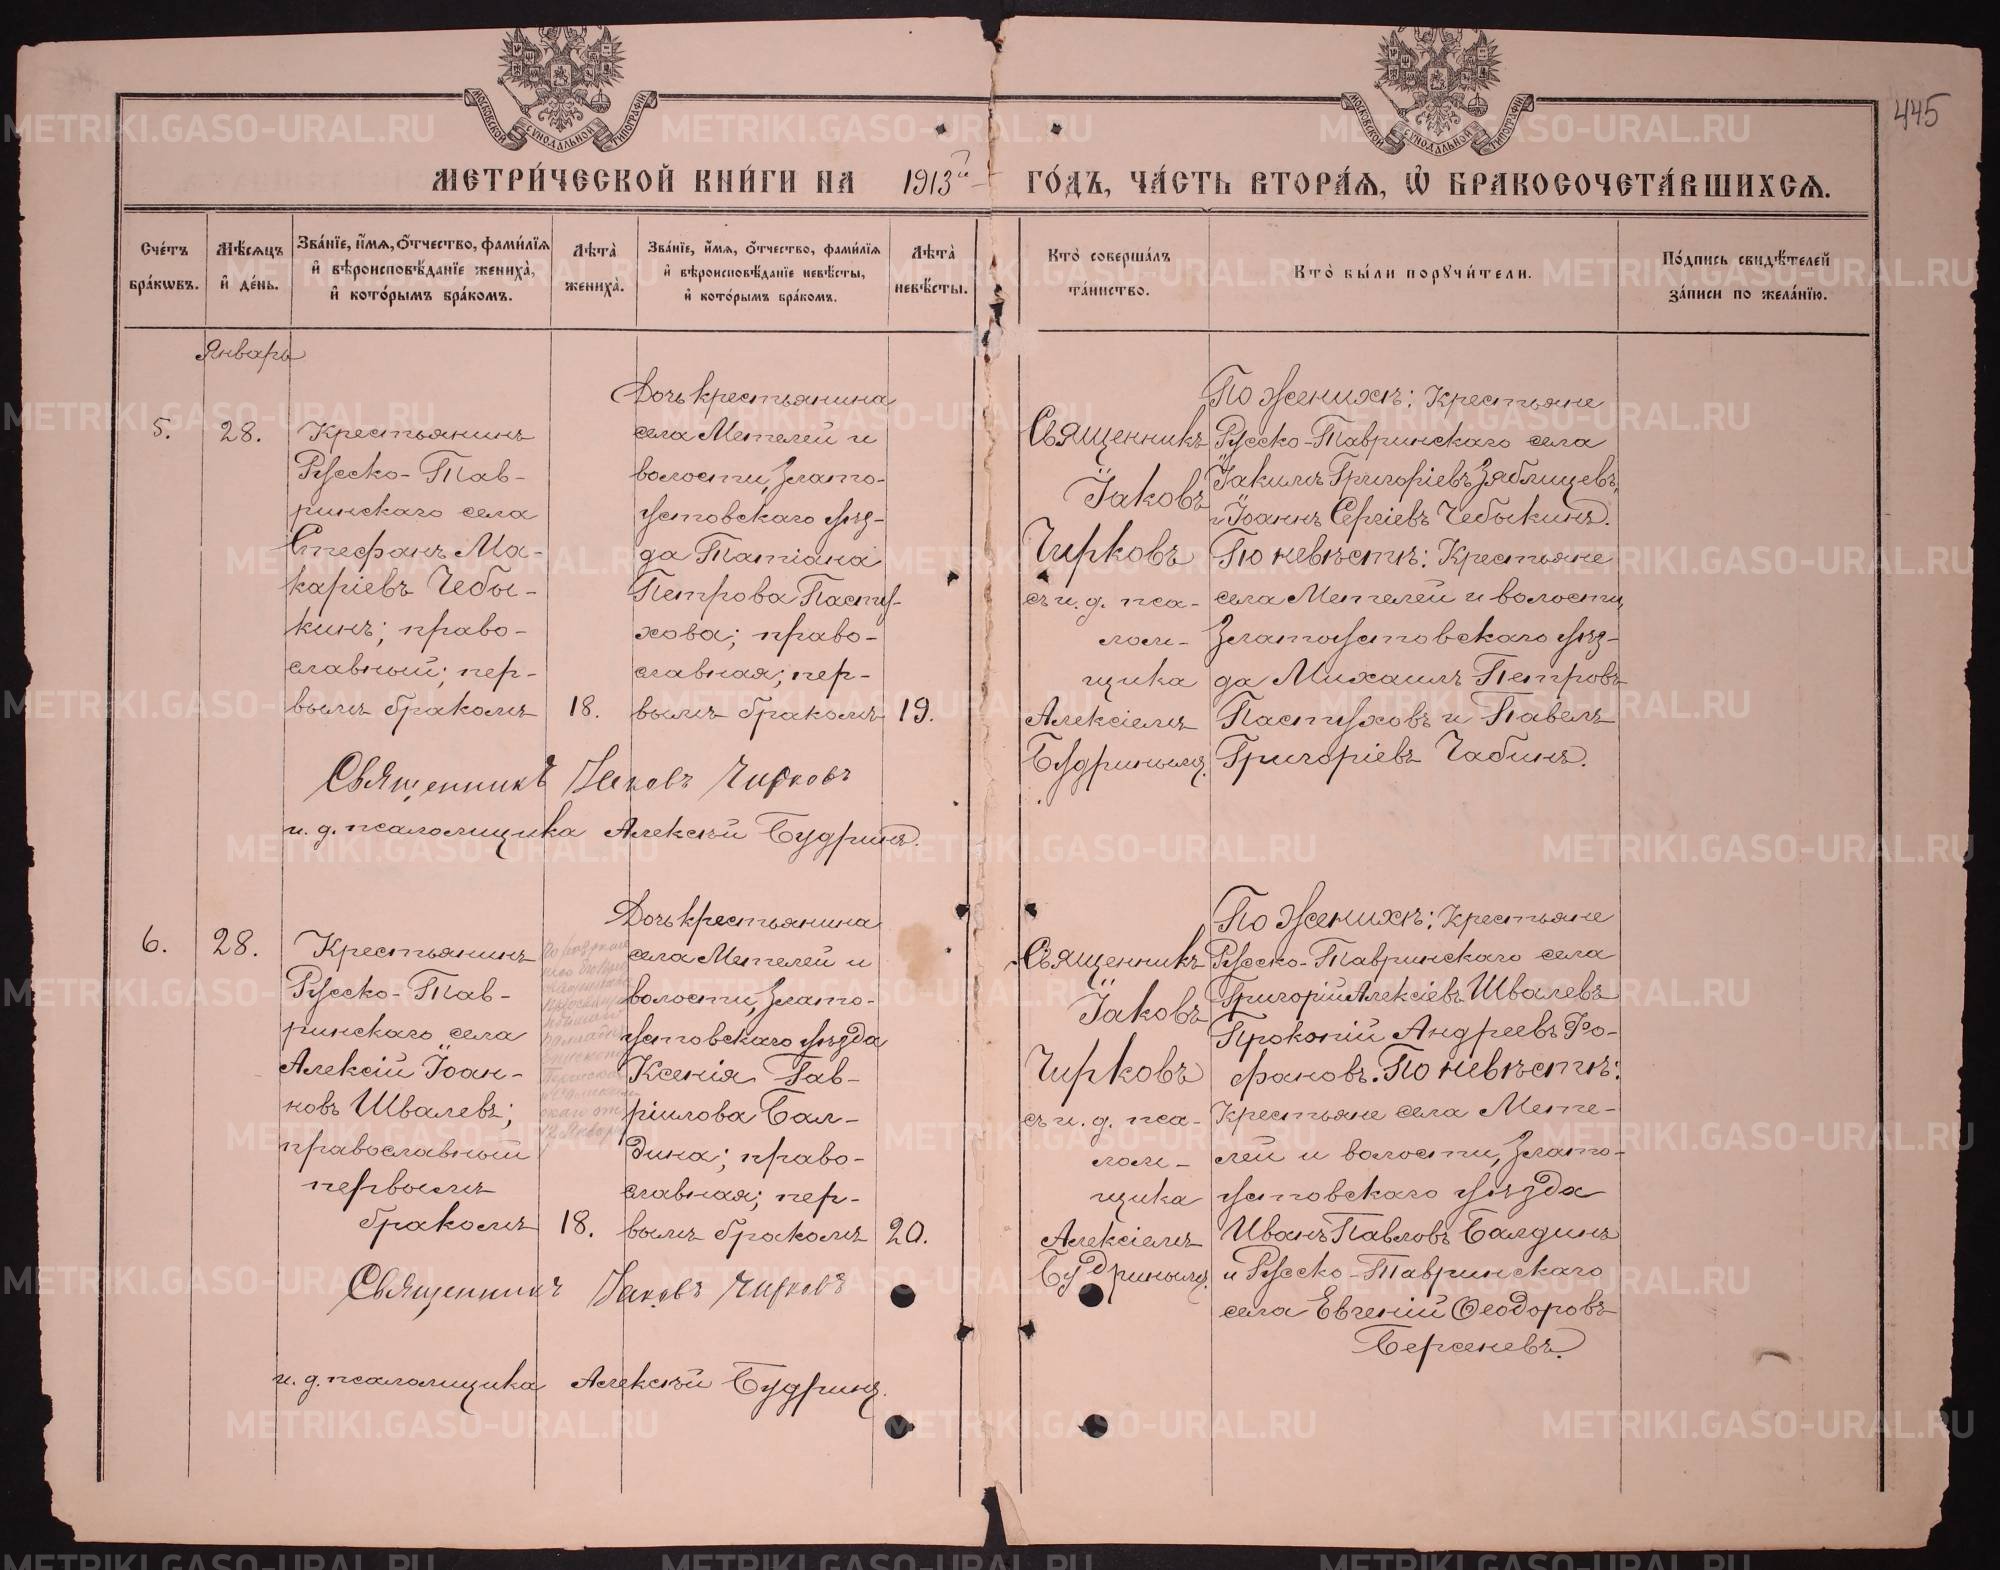 445
МОСКОВСКОЙ СѴНОДАЛЬНОЙ ТИПОГРАФІИ
МОСКОВСКОЙ СѴНОДАЛЬНОЙ ТИПОГРАФІИ
МЕТРИ́ЧЕСКОЙ КНИ́ГИ НА 1913й ГО́ДЪ, ЧА́СТЬ ВТОРА́Ѧ, Ѽ БРАКОСОЧЕТА́ВШИХСѦ.
Сче́тъ
бра́кѡвъ.
Мѣ́сяцъ
и҆ де́нь.
Зва́нїе, и҆́мѧ, ѻ҆́тчество, фами́лїѧ
и҆ вѣроисповѣ́данїе жениха̀,
и҆ кото́рымъ бра́комъ.
Лѣта̀
жениха̀.
Зва́нїе, и҆́мѧ, ѻ҆́тчество, фами́лїѧ
и҆ вѣроисповѣ́данїе невѣ́сты,
и҆ кото́рымъ бра́комъ.
Лѣта̀
невѣ́сты.
Кто̀ соверша́лъ
та́инство.
Кто̀ бы́ли порꙋчи́тели.
По́дпись свидѣ́телей
за́писи по жела́нїю.
Январь
5.
28.
Крестьянинъ
Русско-Тав-
ринскаго села
Стефанъ Ма-
каріевъ Чебы-
кинъ; право-
славный; пер-
вымъ бракомъ
18.
Дочь крестьянина
села Метелей и
волости, Злато-
устовскаго уѣз-
да Татіана
Петрова Пасту-
хова; право-
славная; пер-
вымъ бракомъ
19.
Священникъ
Іаковъ
Чирковъ
съ и. д. пса-
лом-
щика
Алексіемъ
Будринымъ.
По женихѣ: Крестьяне
Русско-Тавринскаго села
Іакимъ Григоріевъ Зяблицевъ,
и Іоаннъ Сергіевъ Чебыкинъ.
По невѣстѣ: Крестьяне
села Метелей и волости,
Златоустовскаго уѣз-
да Михаилъ Петровъ
Пастуховъ и Павелъ
Григоріевъ Чабинъ.
Священникъ Іаковъ Чирковъ
и. д. псаломщика Алексѣй Будринъ.
6.
28.
Крестьянинъ
Русско-Тав-
ринскаго села
Алексій Іоан-
новъ Швалевъ;
православный
первымъ
бракомъ
18.
Дочь крестьянина
села Метелей и
волости, Злато-
устовскаго уѣзда
Ксенія Гав-
ріилова Бал-
дина; право-
славная; пер-
вымъ бракомъ
20.
Священникъ
Іаковъ
Чирковъ
съ и. д. пса-
лом-
щика
Алексіемъ
Будринымъ.
По женихѣ: Крестьяне
Русско-Тавринскаго села
Григорій Алексіевъ Швалевъ
Прокопій Андреевъ Фо-
фановъ. По невѣстѣ:
Крестьяне села Мете-
лей и волости, Злато-
устовскаго уѣзда
Иванъ Павловъ Балдинъ
и Русско-Тавринскаго
села Евгеній Ѳеодоровъ
Берсеневъ.
Священникъ Іаковъ Чирковъ
и. д. псаломщика Алексѣй Будринъ.
METRIKI.GASO-URAL.RU